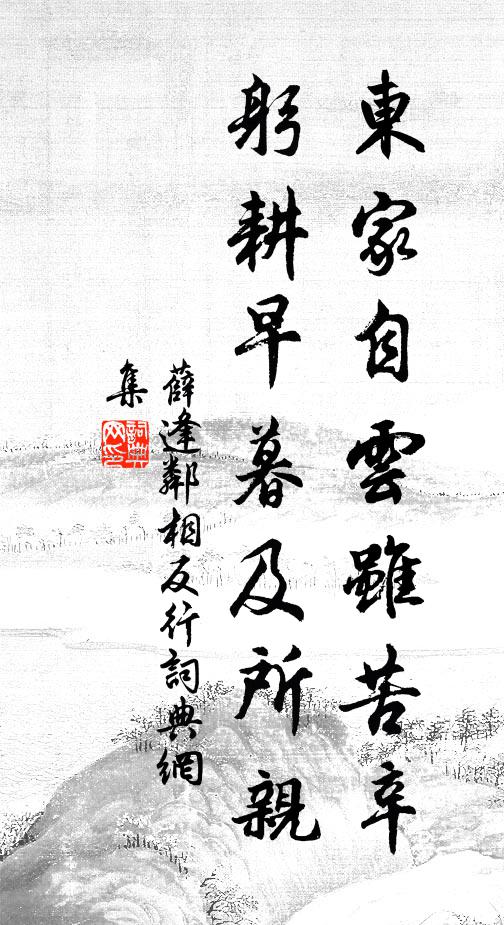 東家自雲雖苦辛
躬耕早暮及所親
薛逢鄰相反行詞典網
集